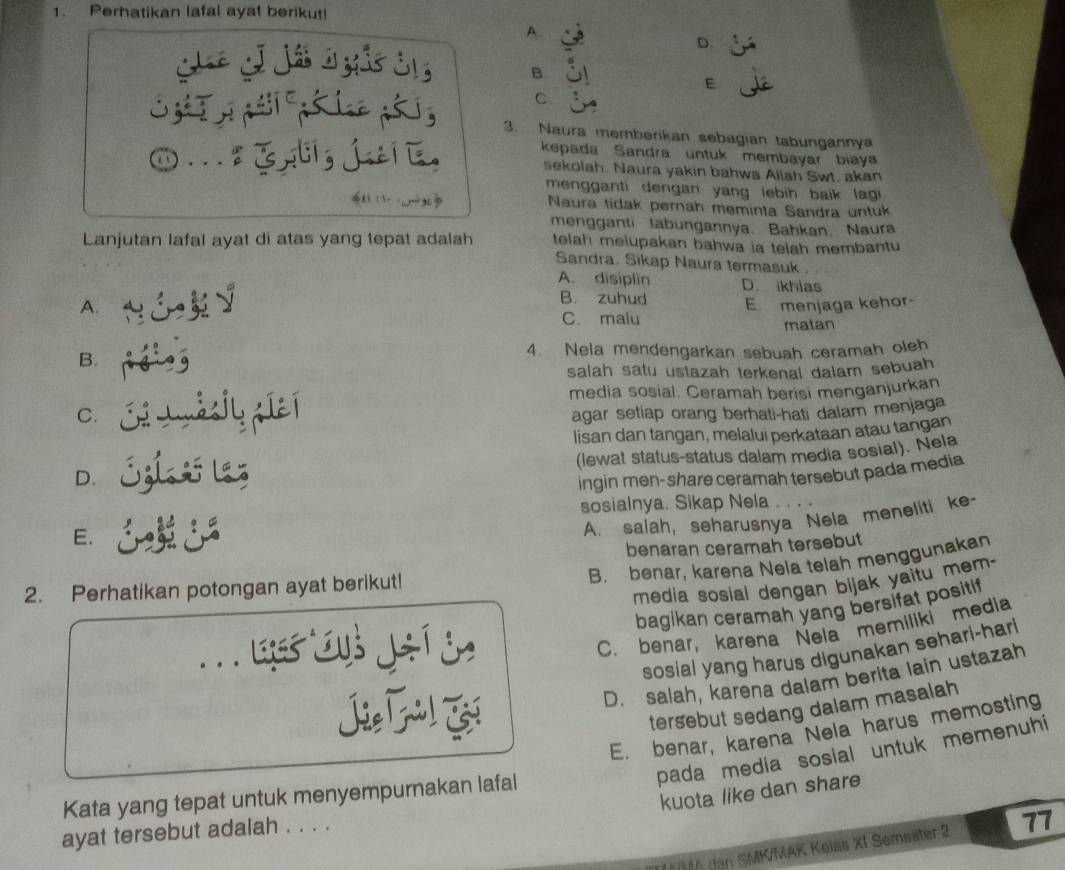 1. Perhatikan lafal ayat berikut!
وَإِنْ كَذَّبُوْكَ فَقُلْ لِّيْ عَمَلِيْ
وَلَكُمْ عَمَلُكُمْ ۚ أَنْتُمْ بَرِيْٓـُٔوْنَ
مِمَّآ أَعْمَلُ وَأَنَا۠ بَرِيْٓءٌ . . . ﴿٤١﴾
﴿يونس، ١٠: ٤١﴾
Lanjutan lafal ayat di atas yang tepat adalah
. . . .
A. لَّا يُؤْمِنُ بِهٖ
B. وَمِنْهُمْ
C. أَعْلَمُ بِالْمُفْسِدِيْنَ
D. مِمَّا تَعْمَلُوْنَ
E. مَّنْ يُؤْمِنُ
2. Perhatikan potongan ayat berikut!
مِنْ أَجْلِ ذٰلِكَ ۛ كَتَبْنَا . . .
بَنِيْٓ إِسْرَآءِيْلَ
Kata yang tepat untuk menyempurnakan lafal
ayat tersebut adalah . . . .
A. فِيْ
B. إِنَّ
C. مِنْ
D. مَنْ
E. عَلٰى
3. Naura memberikan sebagian tabungannya
kepada Sandra untuk membayar biaya
sekolah. Naura yakin bahwa Allah Swt. akan
mengganti dengan yang lebih baik lagi.
Naura tidak pernah meminta Sandra untuk
mengganti tabungannya. Bahkan, Naura
telah melupakan bahwa ia telah membantu
Sandra. Sikap Naura termasuk . . . .
A. disiplin
B. zuhud
C. malu
D. ikhlas
E. menjaga kehor-
matan
4. Nela mendengarkan sebuah ceramah oleh
salah satu ustazah terkenal dalam sebuah
media sosial. Ceramah berisi menganjurkan
agar setiap orang berhati-hati dalam menjaga
lisan dan tangan, melalui perkataan atau tangan
(lewat status-status dalam media sosial). Nela
ingin men-share ceramah tersebut pada media
sosialnya. Sikap Nela . . . .
A. salah, seharusnya Nela meneliti ke-
benaran ceramah tersebut
B. benar, karena Nela telah menggunakan
media sosial dengan bijak yaitu mem-
bagikan ceramah yang bersifat positif
C. benar, karena Nela memiliki media
sosial yang harus digunakan sehari-hari
D. salah, karena dalam berita lain ustazah
tersebut sedang dalam masalah
E. benar, karena Nela harus memosting
pada media sosial untuk memenuhi
kuota like dan share
dan SMK/MAK Kelas XI Semester 2
77